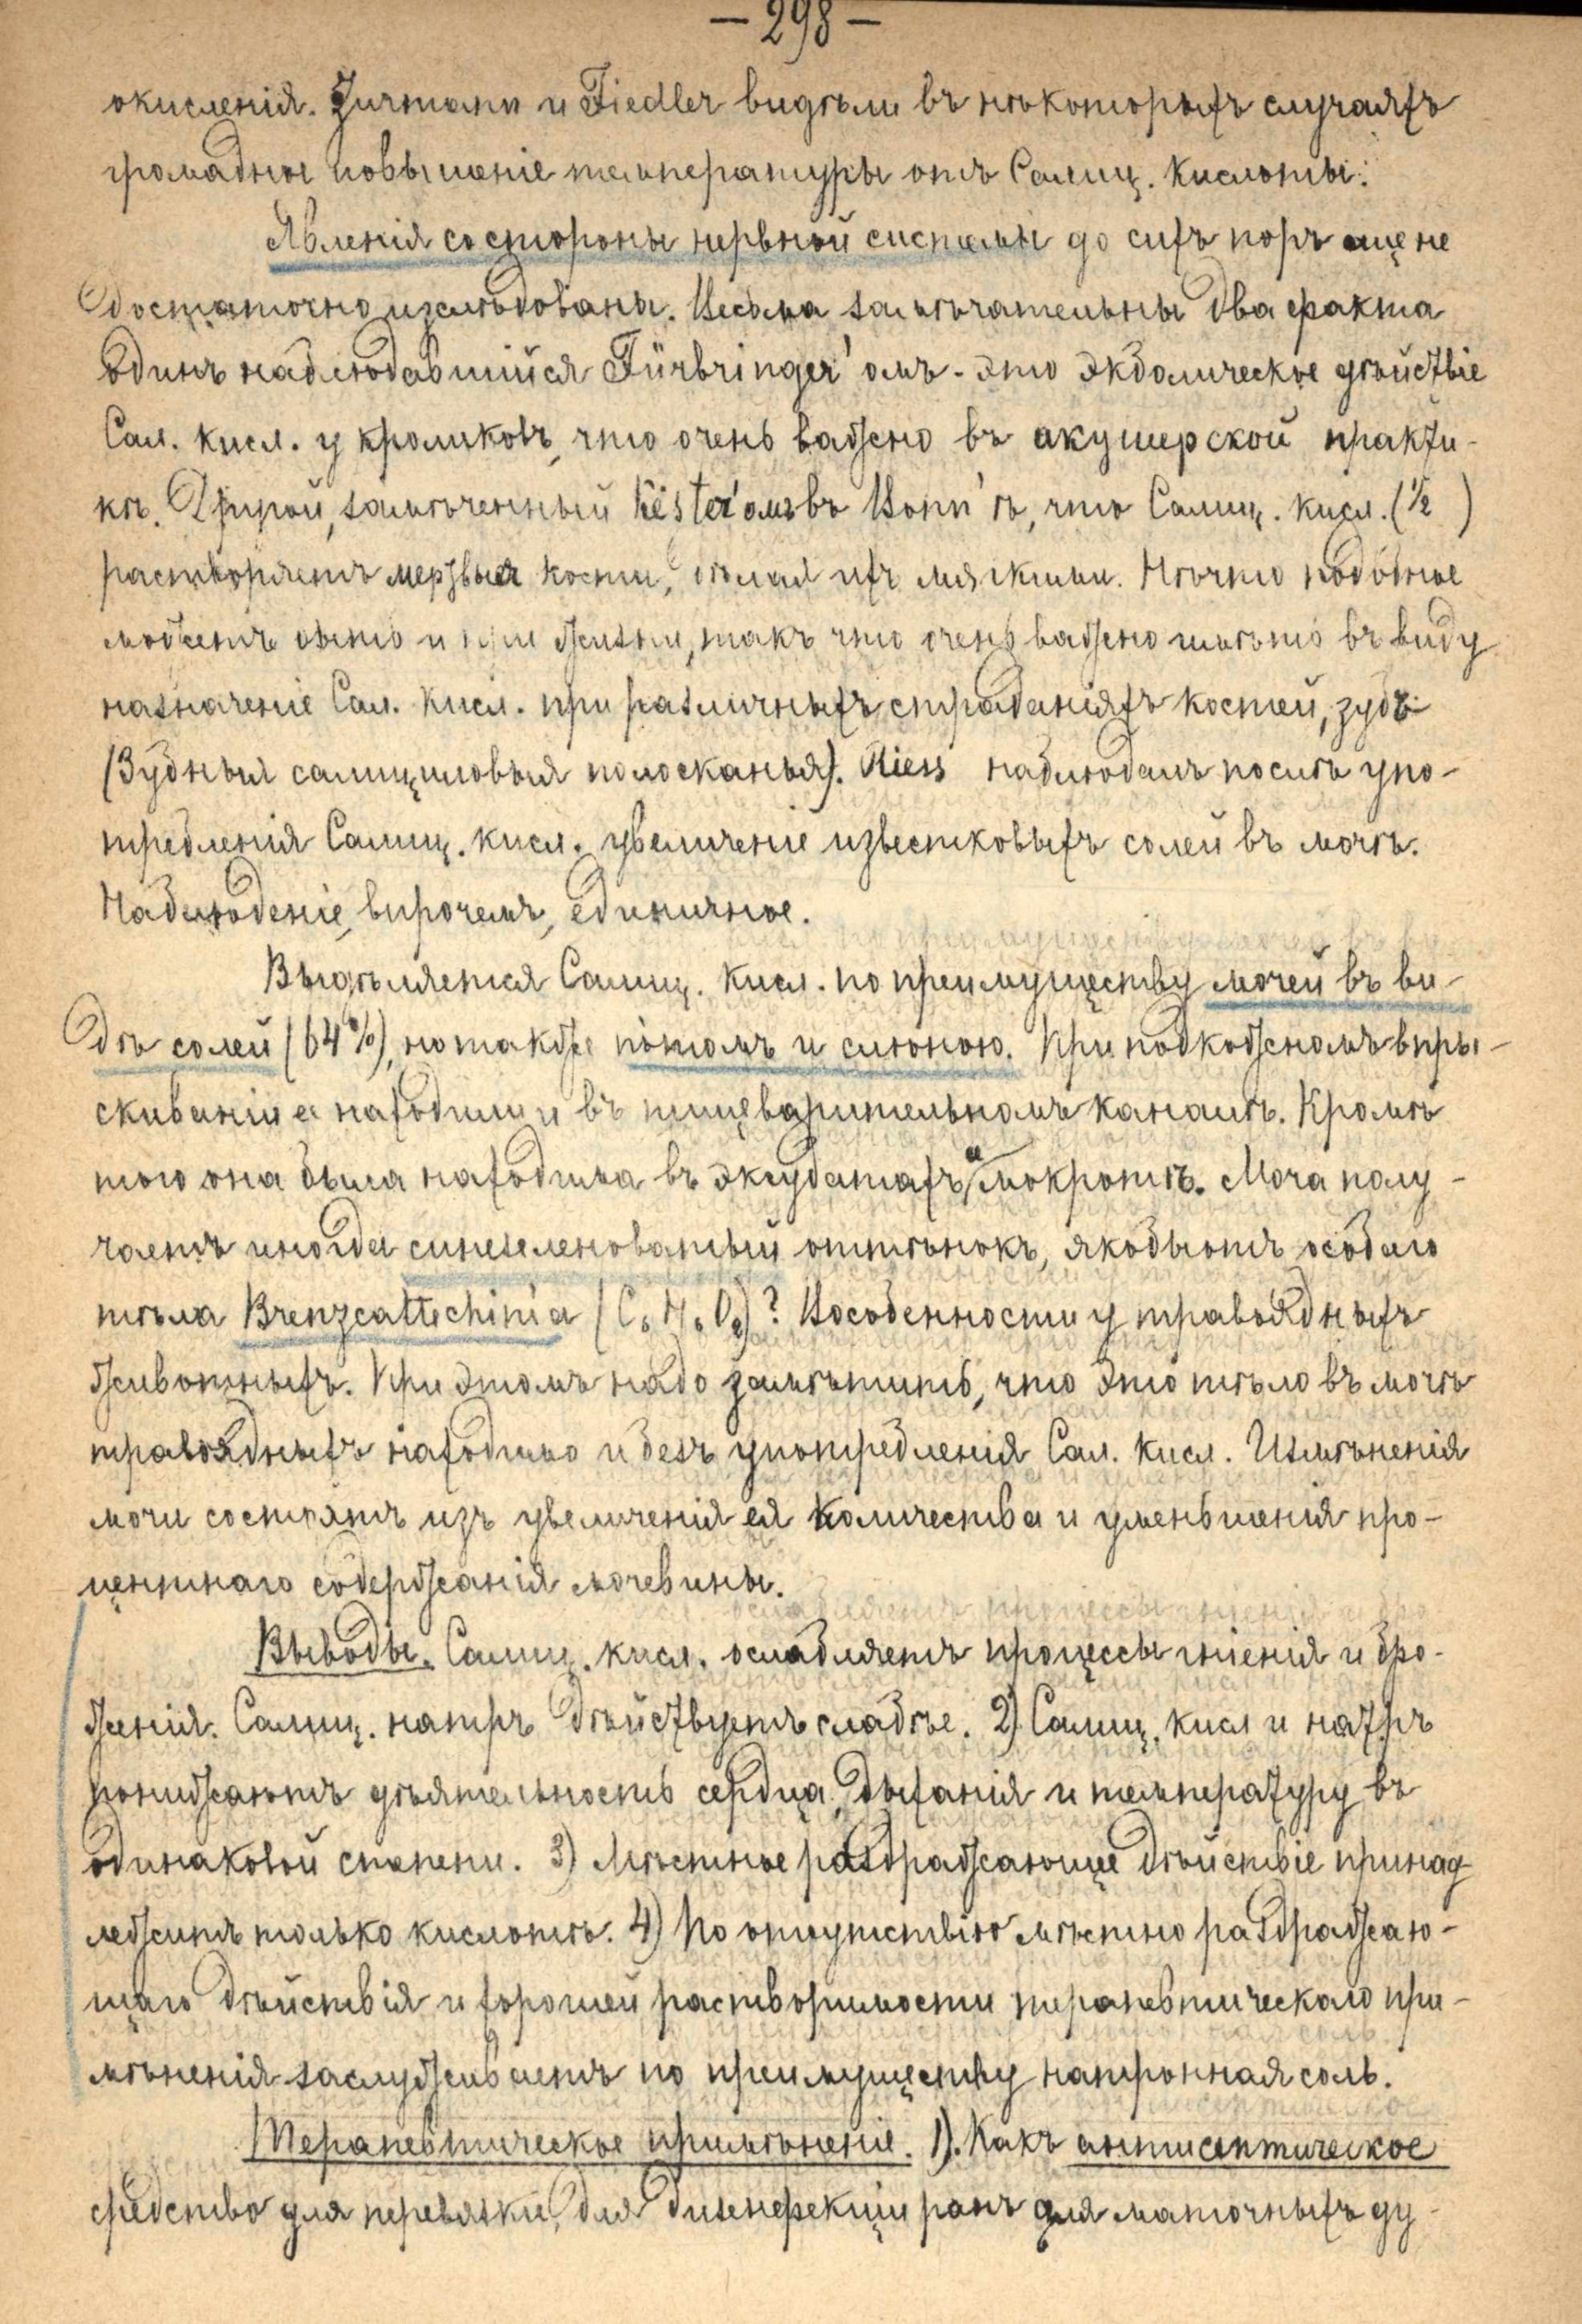 — 298 —
окисленія. Zürmann и Fiedler видѣли въ нѣкоторыхъ случаяхъ
громадное повышеніе температуры отъ Салиц. кислоты.
Явленія со стороны нервной системы до сихъ поръ еще не
достаточно изслѣдованы. Весьма замѣчательны два факта
одинъ наблюдавшійся Fürbringer'омъ - это экболическое дѣйствіе
Сал. кисл. у кроликовъ, что очень важно въ акушерской практи-
кѣ. Другой, замѣченный Kester'омъ въ Bonn'ѣ, что Салиц. кисл. (½ )
растворяетъ мертвыя кости, дѣлая ихъ мягкими. Нѣчто подобное
можетъ быть и при жизни, такъ что очень важно имѣть въ виду
назначеніе Сал. кисл. при различныхъ страданіяхъ костей, зубъ
(Зубныя салициловыя полосканья). Riess наблюдалъ послѣ упо-
требленія Салиц. кисл. увеличеніе известковыхъ солей въ мочѣ.
Наблюденіе, впрочемъ, единичное.
Выдѣляется Салиц. кисл. по преимуществу мочей въ ви-
дѣ солей (64%), но также потомъ и слюною. При подкожномъ впры-
скиваніи ея находили и въ пищеварительномъ каналѣ. Кромѣ
того она была находима въ экссудатахъ и мокротѣ. Моча полу-
чаетъ иногда синезеленоватый оттѣнокъ, якобы отъ особаго
тѣла Brenzcattechin'а (C₆ H₆ O₂)? Въ особенности у травоядныхъ
животныхъ. При этомъ надо замѣтить, что это тѣло въ мочѣ
травоядныхъ находимо и безъ употребленія Сал. кисл. Измѣненія
мочи состоятъ изъ увеличенія ея количества и уменьшенія про-
центнаго содержанія мочевины.
Выводы. Салиц. кисл. ослабляетъ процессы гніенія и бро-
женія. Салиц. натръ дѣйствуетъ слабѣе. 2) Салиц. кисл и натръ
понижаютъ дѣятельность сердца, дыханія и температуру въ
одинаковой степени. 3) Мѣстное раздражающее дѣйствіе принад
лежитъ только кислотѣ. 4) По отсутствію мѣстно раздражаю-
щаго дѣйствія и хорошей растворимости терапевтическаго при-
мѣненія заслуживаетъ по преимуществу натронная соль.
Терапевтическое примѣненіе. 1). Какъ антисептическое
средство для перевязки, для дизенфекціи ранъ для маточныхъ ду-